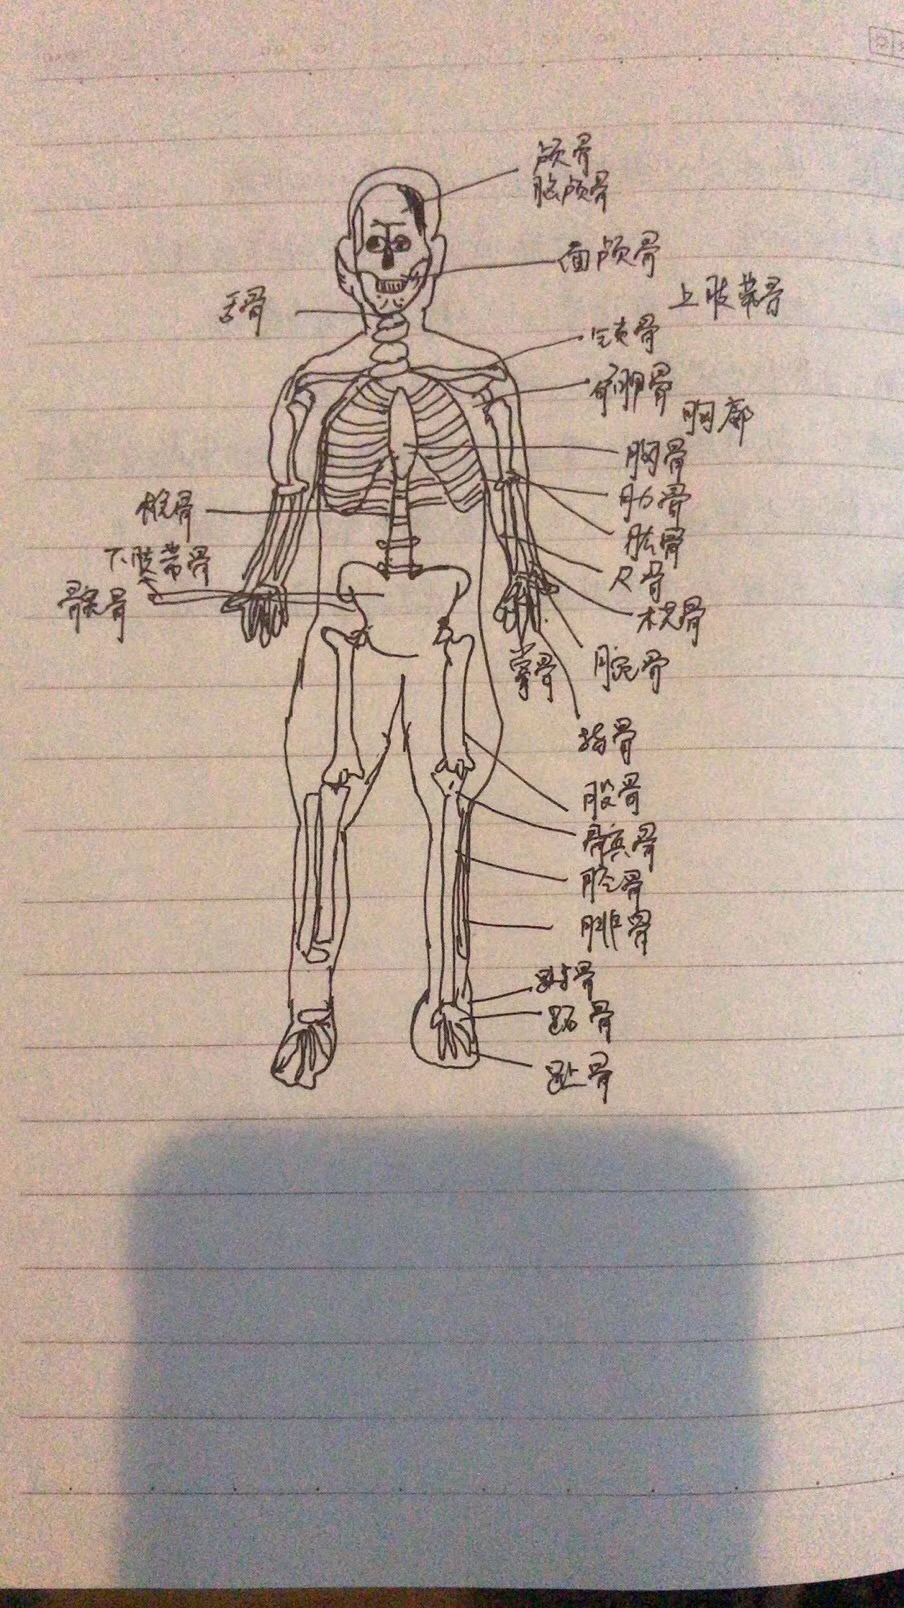 颅骨
脑颅骨
面颅骨
上肢带骨
舌骨
锁骨
肩胛骨
胸廓
胸骨
肋骨
椎骨
肱骨
下肢带骨
尺骨
髋骨
桡骨
掌骨
腕骨
指骨
股骨
髌骨
胫骨
腓骨
跗骨
跖骨
趾骨